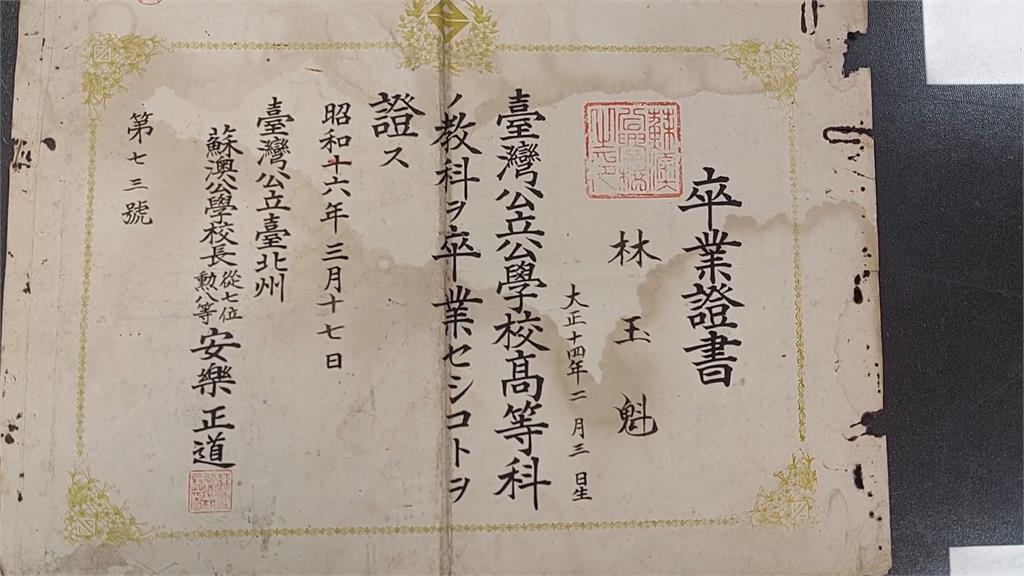 卒業證書
林玉魁
大正十四年二月三日生
臺灣公立公學校高等科
ノ教科ヲ卒業セシコトヲ
證ス
昭和十六年三月十七日
臺灣公立臺北州
蘇澳公學校長從七位勲八等安樂正道
第七三號